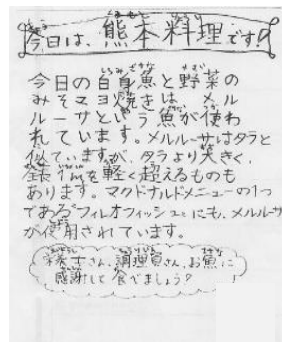 今日は、熊本料理です!
今日の白身魚と野菜の
みそマヨ焼きは、メル
ルーサという魚が使わ
れています。メルルーサはタラと
似ていますが、タラより大きく、
を軽く超えるものも
あります。マクドナルドメニューの1つ
である"フィレオフィッシュ"にも、メルルーサ
が使用されています。
栄養士さん、調理員さん、お魚に
感謝して食べましょう?